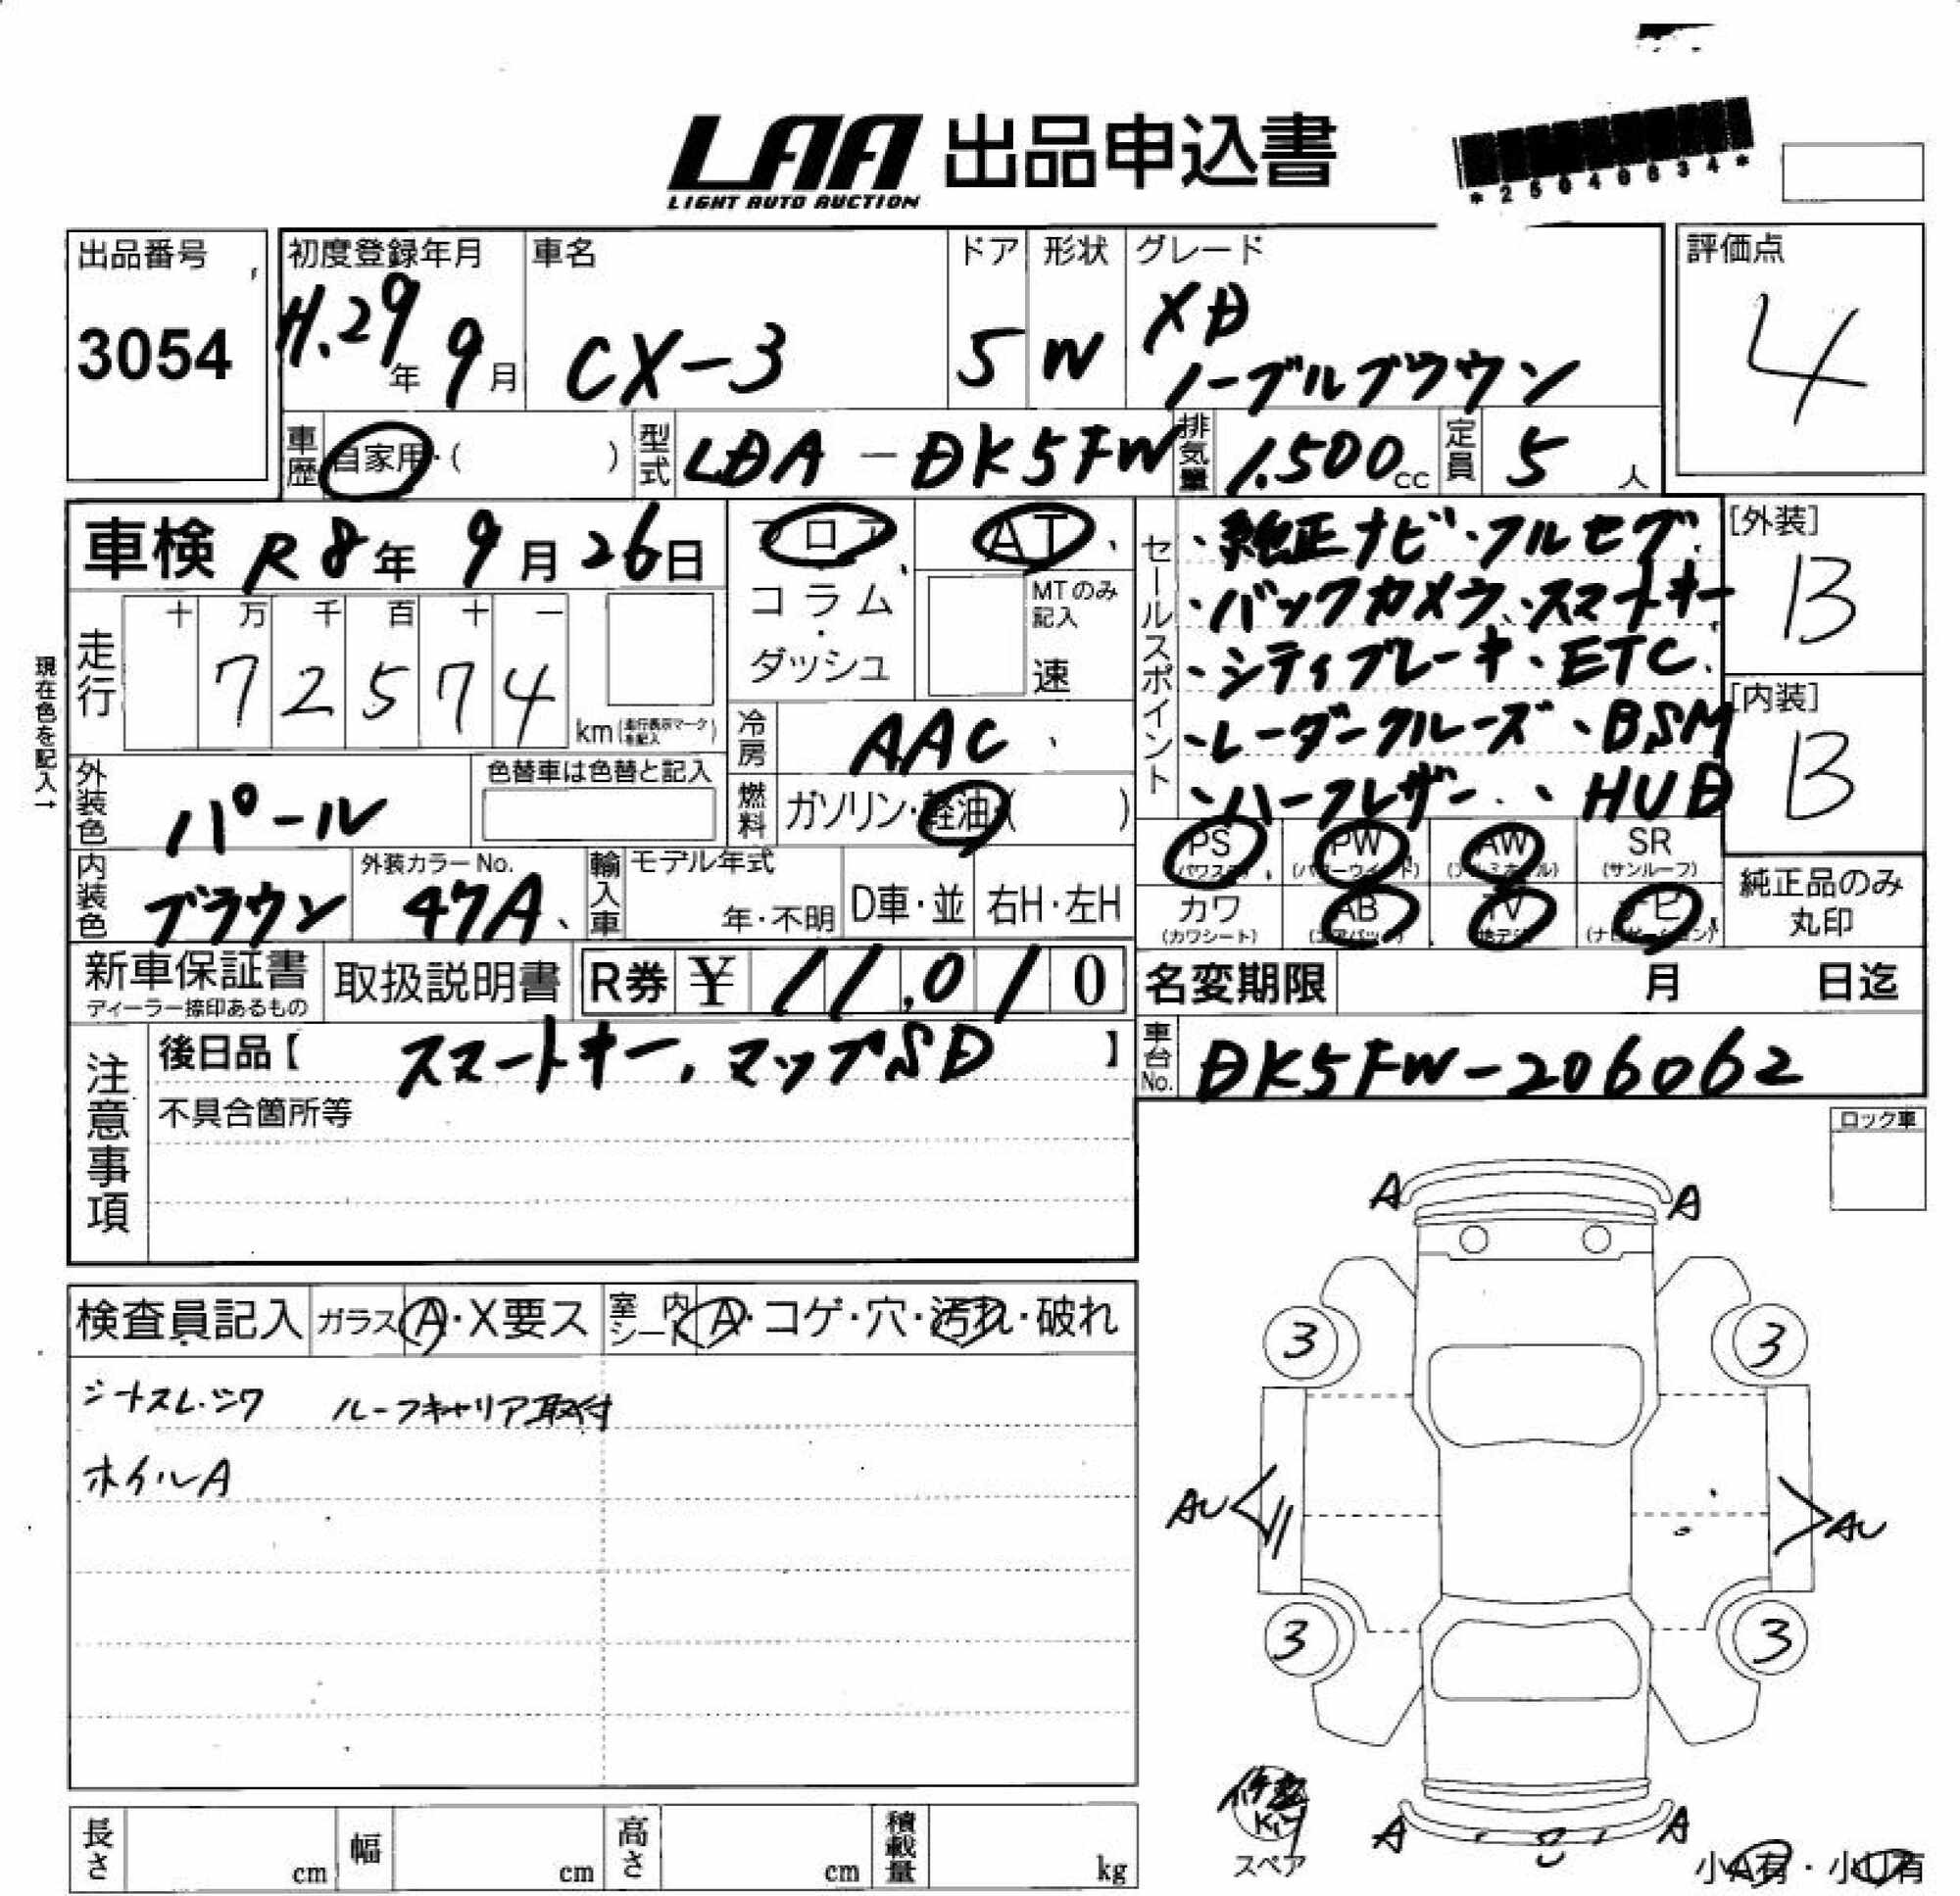 LAA 出品申込書
LIGHT AUTO AUCTION
出品番号
3054
初度登録年月
H.29年 9月
車名
CX-3
ドア
5
形状
W
グレード
XD
ノーブルブラウン
評価点
4
車歴 自家用・( )
型式 LDA-DK5FW
排気量 1.500cc
定員 5人
車検 R8年 9月 26日
フロア
コラム
・
ダッシュ
AT
MTのみ
記入
速
現在色を記入→
走行
十 万 千 百 十 一
7 2 5 7 4
km(走行表示マークを記入)
冷房 AAC
燃料 ガソリン・軽油( )
外装色 パール
色替車は色替と記入
内装色 ブラウン
外装カラーNo.
47A
輸入車
モデル年式
年・不明
D車・並
右H・左H
セールスポイント
・純正ナビ・フルセグ
・バックカメラ、スマートキー
・シティブレーキ、ETC
・レーダークルーズ、BSM
・ハーフレザー、HUD
[外装]
B
[内装]
B
PS
PW
AW
SR
(サンルーフ)
カワ
(カワシート)
AB
TV
ナビ
純正品のみ
丸印
新車保証書
ディーラー捺印あるもの
取扱説明書
R券 ¥ 11,010
名変期限 月 日迄
車台No. DK5FW-206062
注意事項
後日品【 スマートキー、マップSD 】
不具合箇所等
ロック車
検査員記入
ガラス A・X要ス
室内シート A・コゲ・穴・汚れ・破れ
シートスレ・シワ ルーフキャリア取付
ホイルA
A A
3 3
AU AU
3 3
A A
スペア
小A有・小U有
長さ cm
幅 cm
高さ cm
積載量 kg